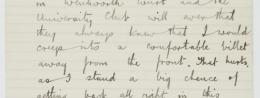 in Wentworth Court and the
University Club will aver that
they always knew that I would
creep into a comfortable billet
away from the front. That hurts
as I stand a big chance of
getting back all right in this